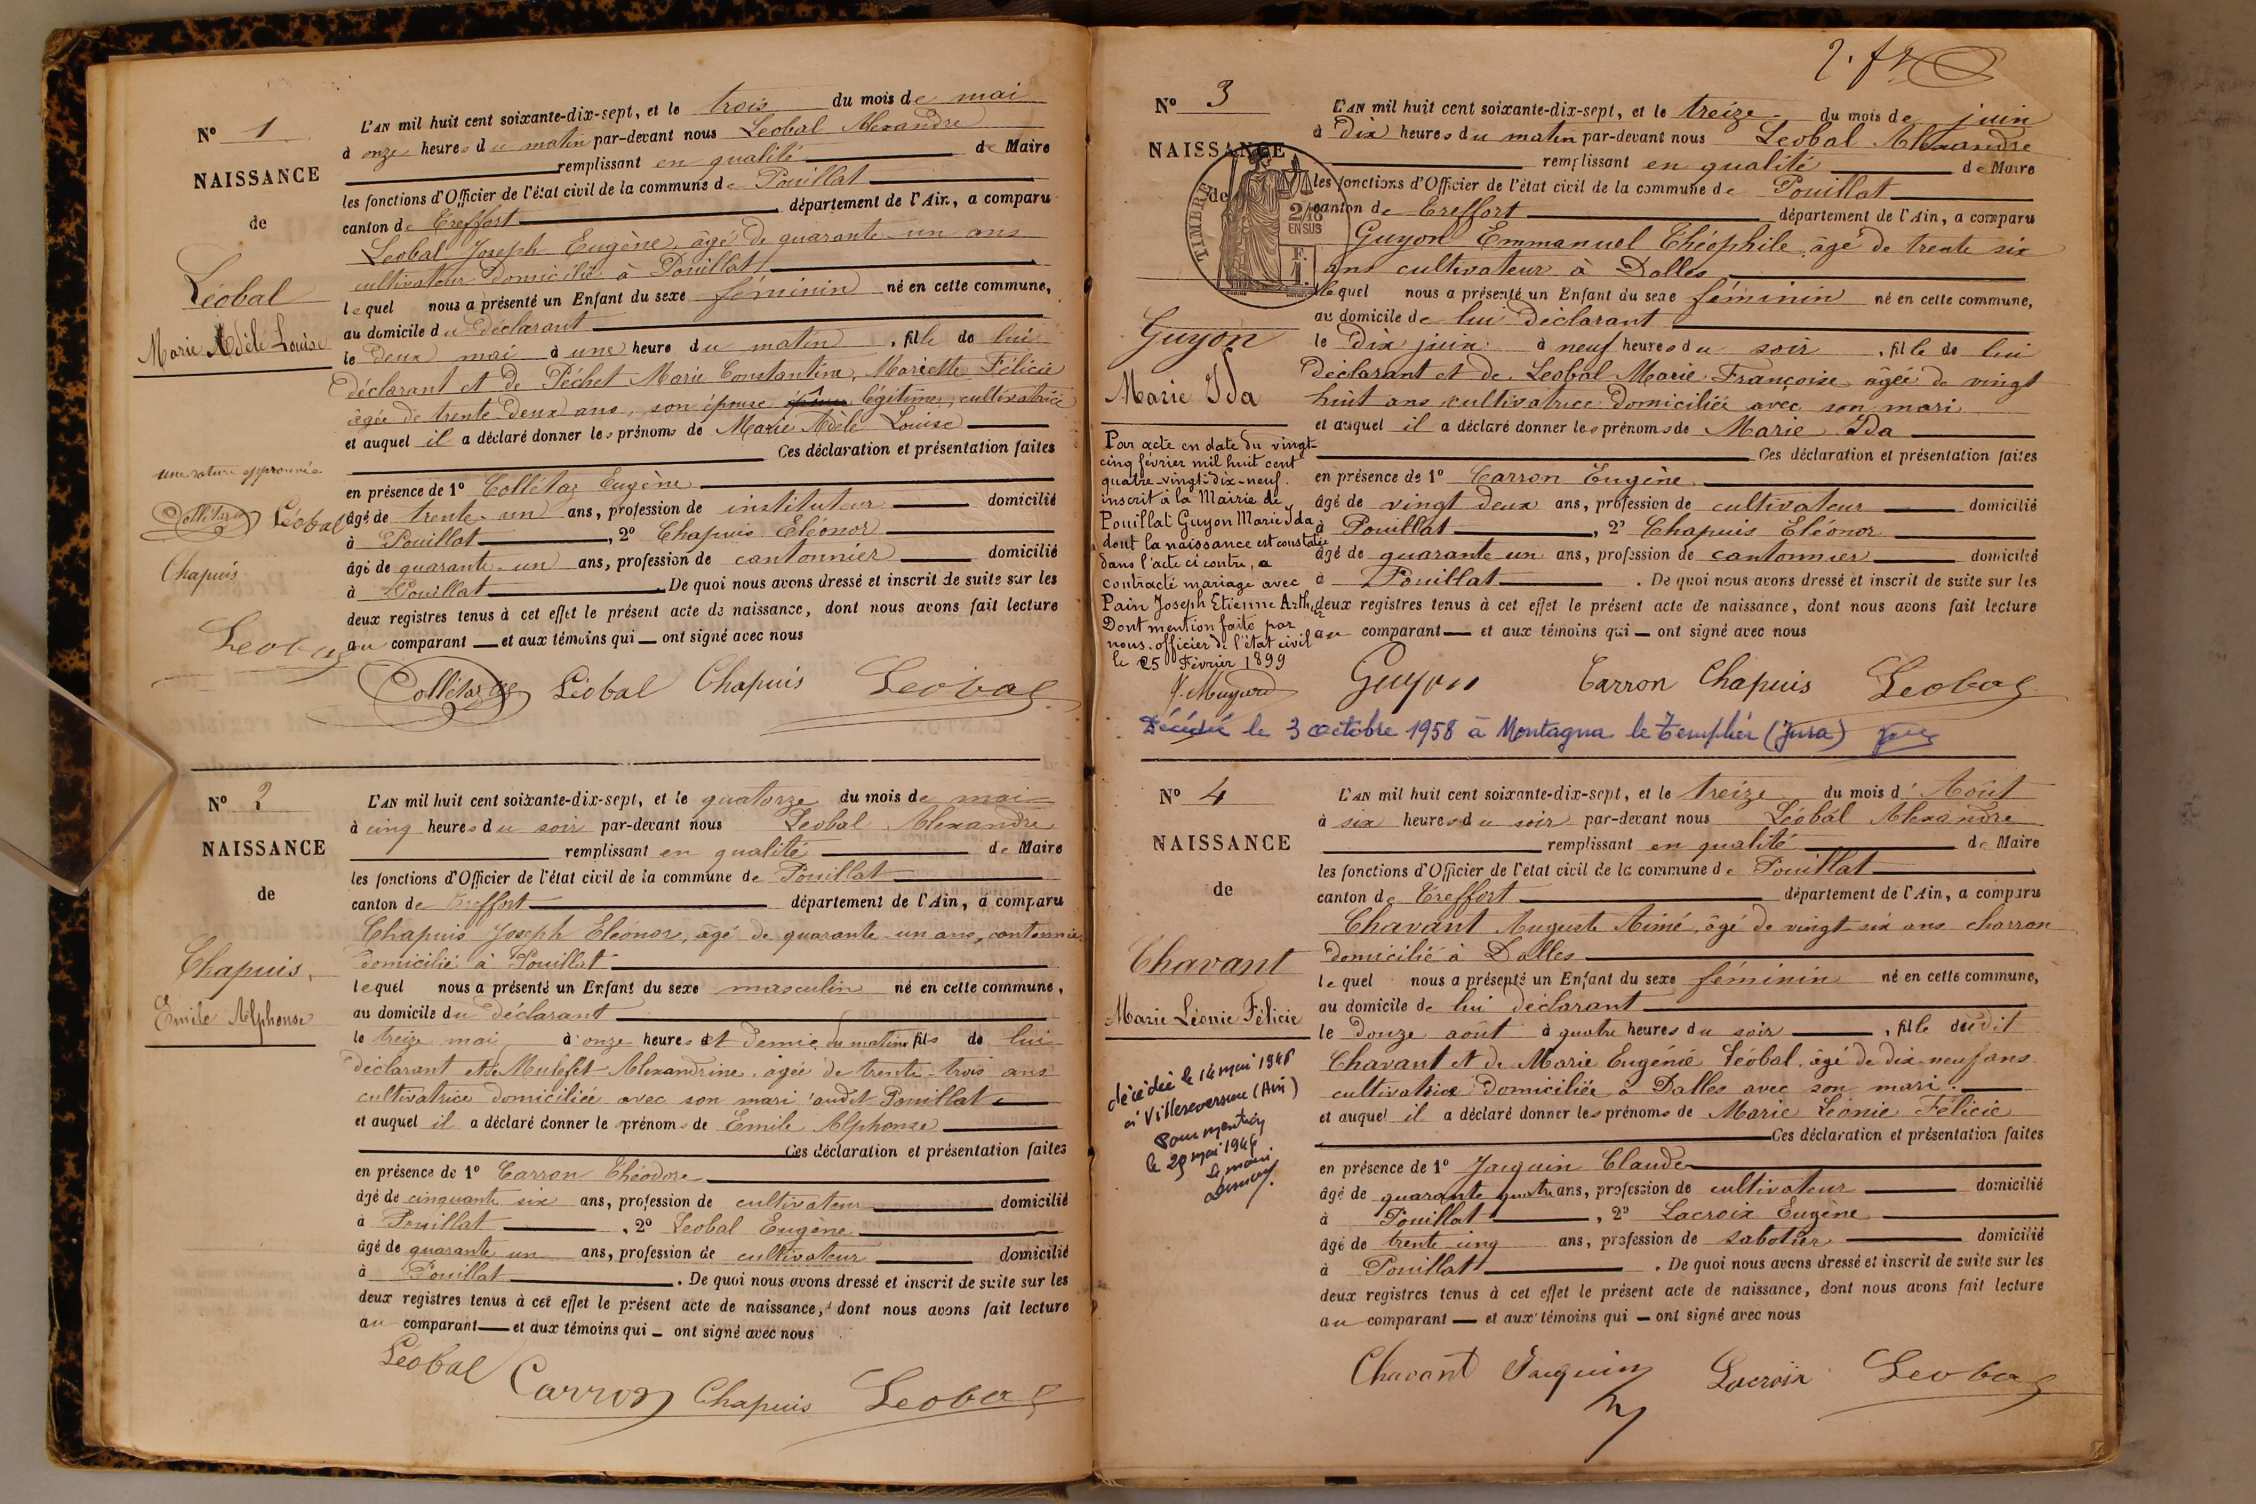 Nº 1
NAISSANCE
de
Léobal
Marie Adèle Louise
une rature approuvée
Collétaz Léobal
Chapuis
Leobal
L'AN mil huit cent soixante-dix-sept, et le trois du mois de mai
à onze heures du matin par-devant nous Leobal Alexandre
remplissant en qualité de Maire
les fonctions d'Officier de l'état civil de la commune de Pouillat
canton de Treffort département de l'Ain, a comparu
Leobal Joseph Eugène, âgé de quarante-un ans
cultivateur domicilié à Pouillat
lequel nous a présenté un Enfant du sexe féminin né en cette commune,
au domicile du déclarant
le deux mai à une heure du matin, fille de lui
déclarant et de Péchet Marie Constantine, Mariette Félicie
âgée de trente deux ans, son épouse légitime, cultivatrice
et auquel il a déclaré donner les prénoms de Marie Adèle Louise
Ces déclaration et présentation faites
en présence de 1º Collétaz Eugène
âgé de trente-un ans, profession de instituteur domicilié
à Pouillat, 2º Chapuis Eléonor
âgé de quarante-un ans, profession de cantonnier domicilié
à Pouillat. De quoi nous avons dressé et inscrit de suite sur les
deux registres tenus à cet effet le présent acte de naissance, dont nous avons fait lecture
au comparant — et aux témoins qui — ont signé avec nous
Collétaz Léobal Chapuis Leobal
Nº 2
NAISSANCE
de
Chapuis,
Emile Alphonse
L'AN mil huit cent soixante-dix-sept, et le quatorze du mois de mai
à cinq heures du soir par-devant nous Leobal Alexandre
remplissant en qualité de Maire
les fonctions d'Officier de l'état civil de la commune de Pouillat
canton de Treffort département de l'Ain, a comparu
Chapuis Joseph Eléonor, âgé de quarante-un ans, cantonnier
domicilié à Pouillat
lequel nous a présenté un Enfant du sexe masculin né en cette commune,
au domicile du déclarant
le treize mai à onze heures et demie du matin fils de lui
déclarant et de Alexandrine, âgée de trente-trois ans
cultivatrice domiciliée avec son mari audit Pouillat
et auquel il a déclaré donner le prénoms de Emile Alphonse
Ces déclaration et présentation faites
en présence de 1º Carron Théodore
âgé de cinquante six ans, profession de cultivateur domicilié
à Pouillat, 2º Leobal Eugène
âgé de quarante un ans, profession de cultivateur domicilié
à Pouillat. De quoi nous avons dressé et inscrit de suite sur les
deux registres tenus à cet effet le présent acte de naissance, dont nous avons fait lecture
au comparant — et aux témoins qui — ont signé avec nous
Leobal Carron Chapuis Leobal
Nº 3
NAISSANCE
de
TIMBRE
2/10
EN SUS
F.
1.
Guyon
Marie Ida
Par acte en date du vingt-
cinq février mil huit cent
quatre-vingt-dix-neuf.
inscrit à la Mairie de
Pouillat Guyon Marie Ida
dont la naissance est constatée
dans l'acte ci contre, a
contracté mariage avec
Pain Joseph Etienne Arthur
Dont mention faite par
nous. officier de l'état civil
le 25 Février 1899
L'AN mil huit cent soixante-dix-sept, et le treize du mois de juin
à Dix heures du matin par-devant nous Leobal Alexandre
remplissant en qualité de Maire
les fonctions d'Officier de l'état civil de la commune de Pouillat
canton de Treffort département de l'Ain, a comparu
Guyon Emmanuel Théophile, âgé de trente six
ans cultivateur à Dalles
lequel nous a présenté un Enfant du sexe féminin né en cette commune,
au domicile de lui déclarant
le Dix juin à neuf heures du soir, fille de lui
déclarant et de Leobal Marie Françoise âgée de vingt
huit ans cultivatrice domiciliée avec son mari
et auquel il a déclaré donner les prénoms de Marie Ida
Ces déclaration et présentation faites
en présence de 1º Carron Eugène
âgé de vingt deux ans, profession de cultivateur domicilié
à Pouillat, 2º Chapuis Eléonor
âgé de quarante un ans, profession de cantonnier domicilié
à Pouillat. De quoi nous avons dressé et inscrit de suite sur les
deux registres tenus à cet effet le présent acte de naissance, dont nous avons fait lecture
au comparant — et aux témoins qui — ont signé avec nous
Guyon Carron Chapuis Leobal
Décédée le 3 octobre 1958 à Montagna le Templier (Jura)
Nº 4
NAISSANCE
de
Chavant
Marie Léonie Félicie
décédée le 14 mai 1946
à Villereversure (Ain)
Pour mention
le 29 mai 1946
Le maire
L'AN mil huit cent soixante-dix-sept, et le treize du mois d'Août
à six heures du soir par-devant nous Léobal Alexandre
remplissant en qualité de Maire
les fonctions d'Officier de l'état civil de la commune de Pouillat
canton de Treffort département de l'Ain, a comparu
Chavant Auguste Aimé, âgé de vingt six ans charron
domicilié à Dalles
lequel nous a présenté un Enfant du sexe féminin né en cette commune,
au domicile de lui déclarant
le douze août à quatre heures du soir, fille dudit
Chavant et de Marie Eugénie Leobal, âgé de dix-neuf ans
cultivatrice domiciliée à Dalles avec son mari.
et auquel il a déclaré donner les prénoms de Marie Léonie Félicie
Ces déclaration et présentation faites
en présence de 1º Jacquin Claude
âgé de quarante quatre ans, profession de cultivateur domicilié
à Pouillat, 2º Lacroix Eugène
âgé de trente cinq ans, profession de sabotier domicilié
à Pouillat. De quoi nous avons dressé et inscrit de suite sur les
deux registres tenus à cet effet le présent acte de naissance, dont nous avons fait lecture
au comparant — et aux témoins qui — ont signé avec nous
Chavant Jacquin Lacroix Leobal